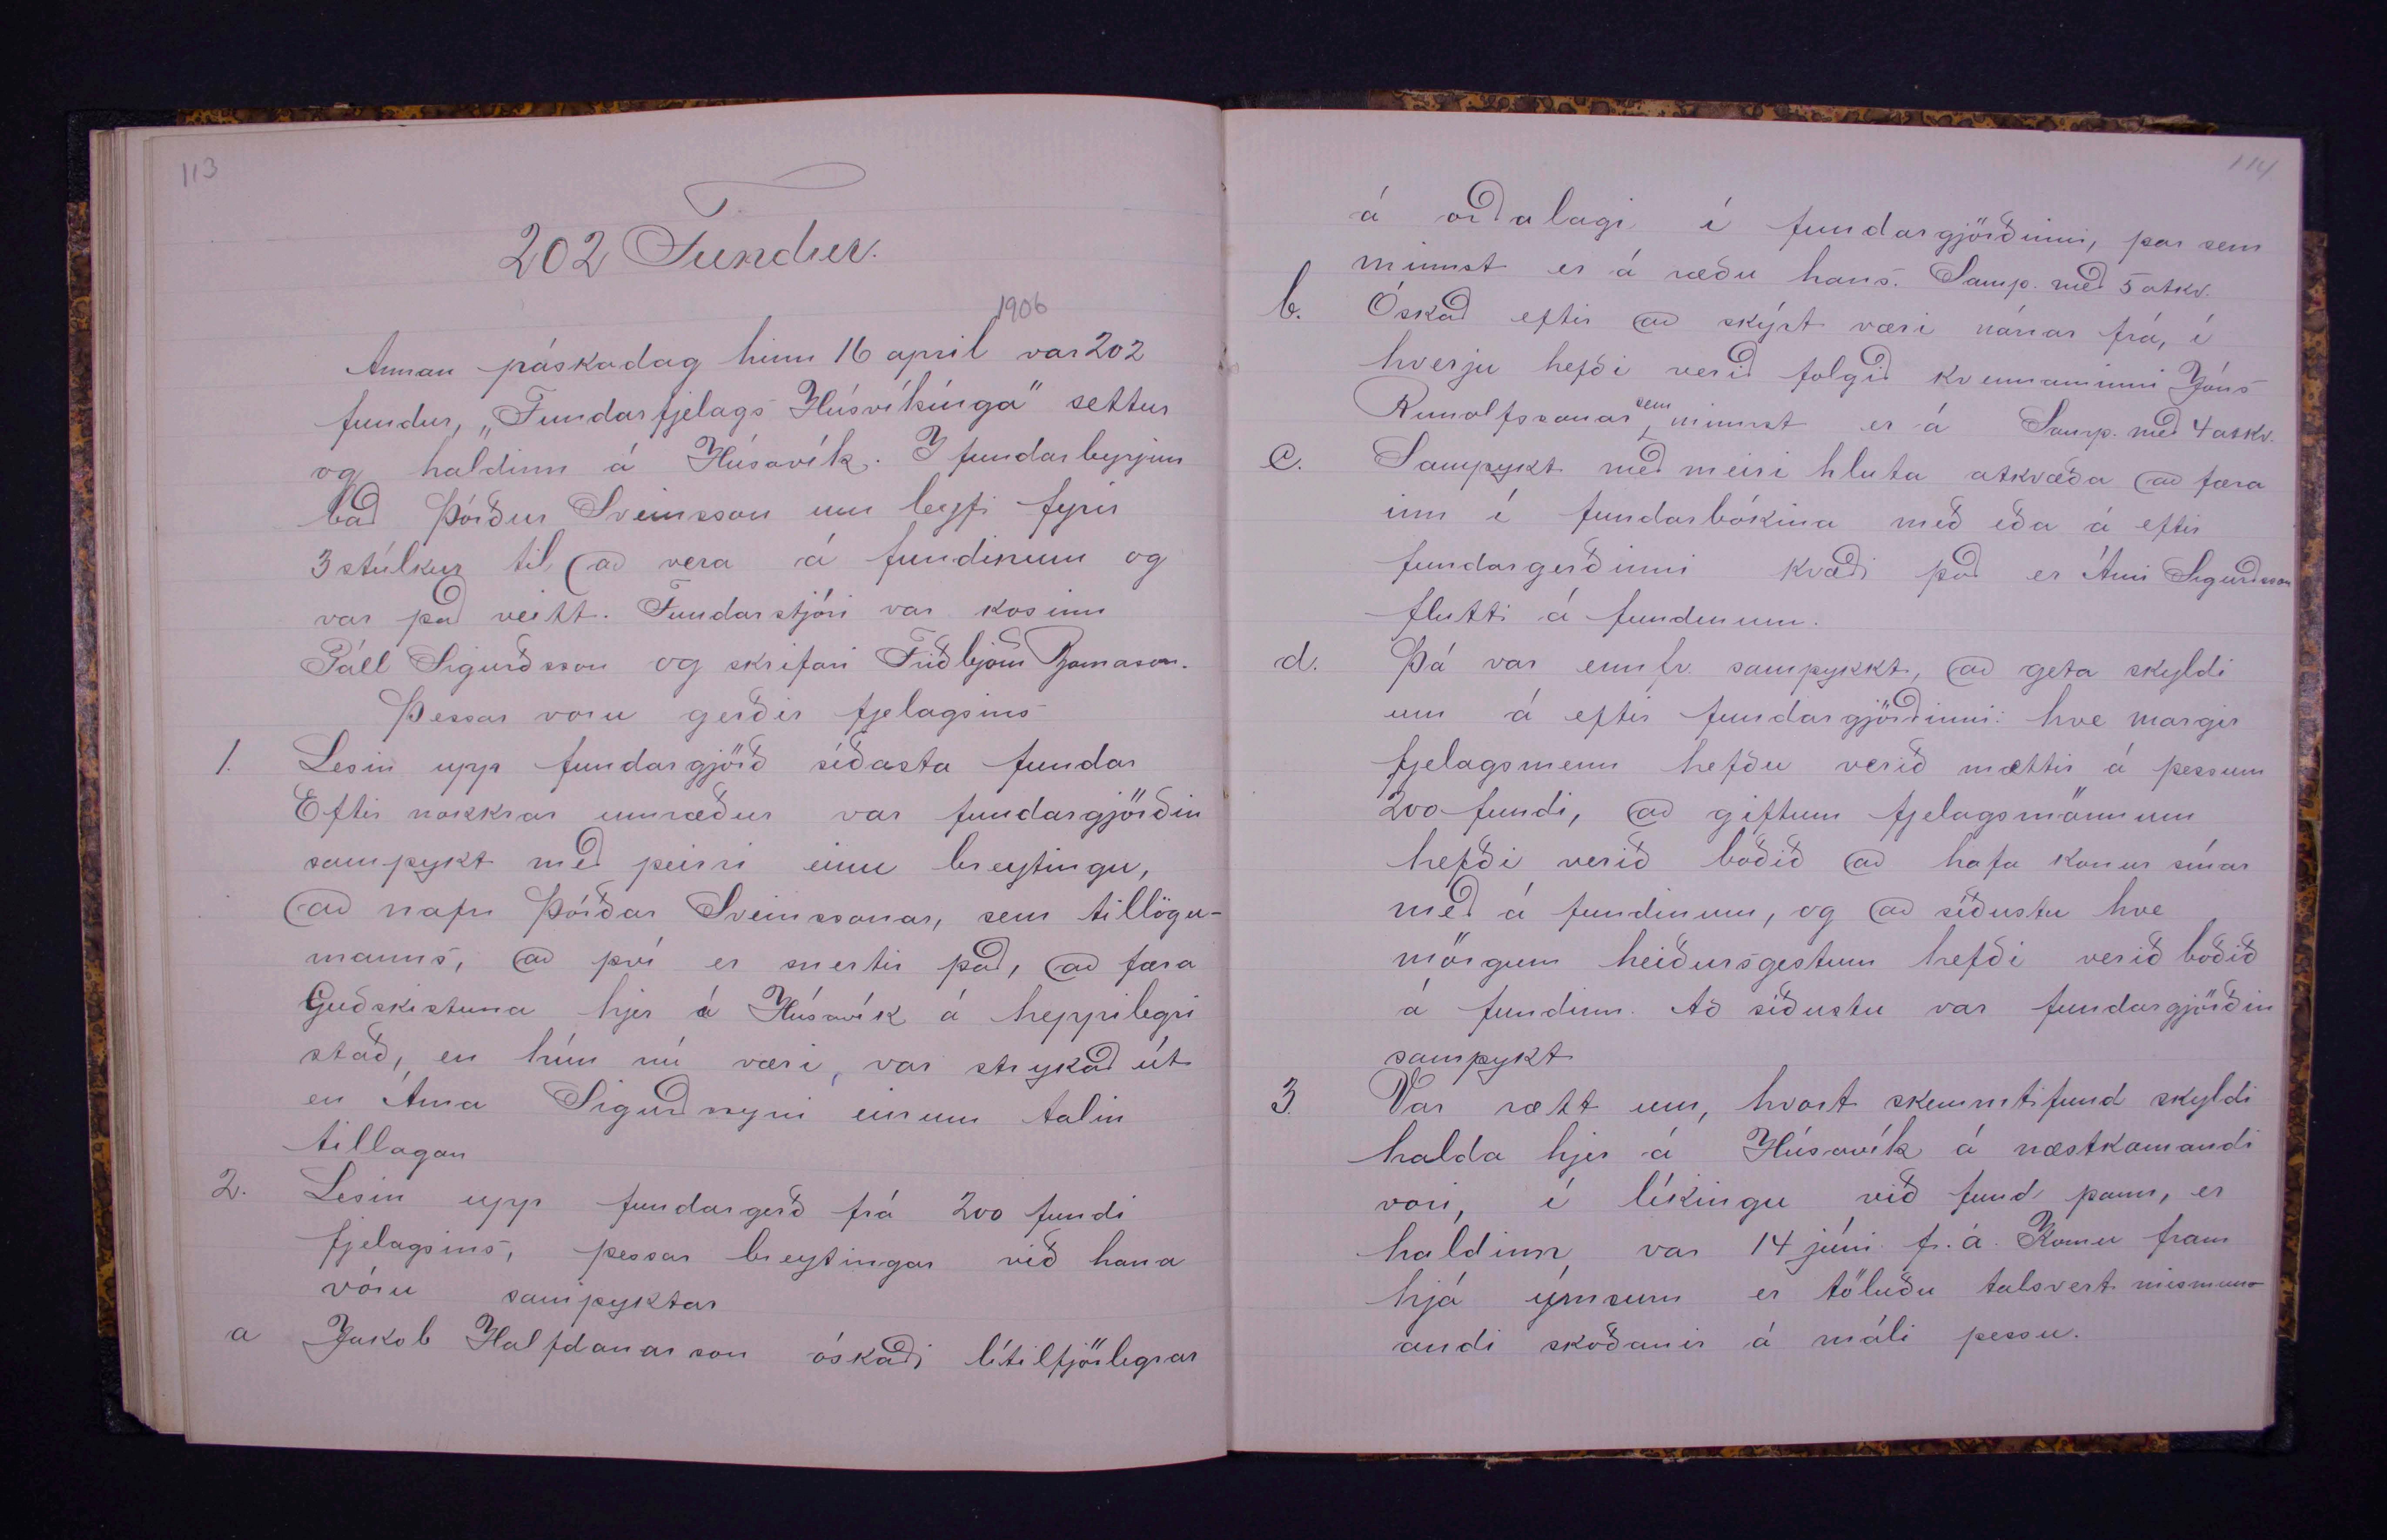 113
202 Fundur.
1906
Annan páskadag hinn 16 apríl var 202
fundur, „Fundarfjelags Húsvíkínga" settur
og haldinn á Húsavík. Í fundarbyrjun
bað Þórður Sveinsson um leyfi fyrir
3 stúlkur til að vera á fundinum og
var það veitt. Fundarstjóri var kosinn
Páll Sigurðsson og skrifari Friðbjörn Bjarnason.
Þessar voru gerðir fjelagsins
1. Lesin upp fundargjörð síðasta fundar
Eftir nokkrar umræður var fundargjörðin
samþykt með þeirri einu breytingu,
að nafn Þórðar Sveinssonar, sem tillögu-
manns, að því er snertir það, að færa
Guðskistuna hjer á Húsavík á heppilegri
stað, en hún nú væri, var strykað út
en Árna Sigurðssyni einum talin
tillagan
2. Lesin upp fundargerð frá 200 fundi
fjelagsins, þessar breytingar við hana
vóru samþyktar
a Jakob Halfdanarson óskaði lítilfjörlegrar
114
á orðalagi í fundargjörðinni, þar sem
minnst er á ræðu hans. Samþ. með 5 atkv.
b. Óskað eftir að skýrt væri nánar frá, í
hverju hefði verið fólgið kvennaminni Jóns
Runolfssonar, sem minnst er á Samþ. með 4 atkv.
c. Samþykt með meiri hluta atkvæða að færa
inn í fundarbókina með eða á eftir
fundargerðinni kvæði það er Árni Sigurðsson
flutti á fundenum.
d. Þá var ennfr. samþykkt, að geta skyldi
um á eftir fundargjörðinni: hve margir
fjelagsmenn hefðu verið mættir á þessum
200 fundi, að giftum fjelagsmönnum
hefði verið boðið að hafa konur sínar
með á fundinum, og að síðustu hve
mörgum heiðursgestum hefði verið boðið
á fundinn. Að síðustu var fundargjörðin
samþykt
3. Var rætt um, hvort skemmtifund skyldi
halda hjer á Húsavík á næstkomandi
vori, í líkingu við fund þann, er
haldinn var 14 júní f. á. Komu fram
hjá ýmsum er töluðu talsvert mismun-
andi skoðanir á máli þessu.